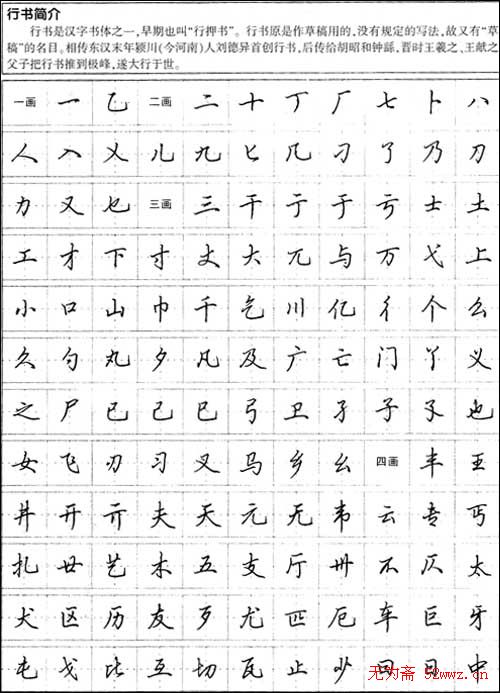 行书简介
行书是汉字书体之一，早期也叫“行押书”。行书原是作草稿用的，没有规定的写法，故又有“草
稿”的名目。相传东汉末年颍川(今河南)人刘德异首创行书，后传给胡昭和钟繇，晋时王羲之、王献之
父子把行书推到极峰，遂大行于世。
一画 一 乙 二画 二 十 丁 厂 七 卜 八
人 入 乂 儿 九 匕 几 刁 了 乃 刀
力 又 乜 三画 三 干 亍 于 亏 士 土
工 才 下 寸 丈 大 兀 与 万 弋 上
小 口 山 巾 千 乞 川 亿 彳 个 么
久 勺 丸 夕 凡 及 广 亡 门 丫 义
之 尸 已 己 巳 弓 卫 孑 子 孓 也
女 飞 刃 习 叉 马 乡 幺 四画 丰 王
井 开 亓 夫 天 元 无 韦 云 专 丐
扎 廿 艺 木 五 支 厅 卅 不 仄 太
犬 区 历 友 歹 尤 匹 厄 车 巨 牙
屯 戈 比 互 切 瓦 止 少 曰 日 中
无为斋 52wwz.cn